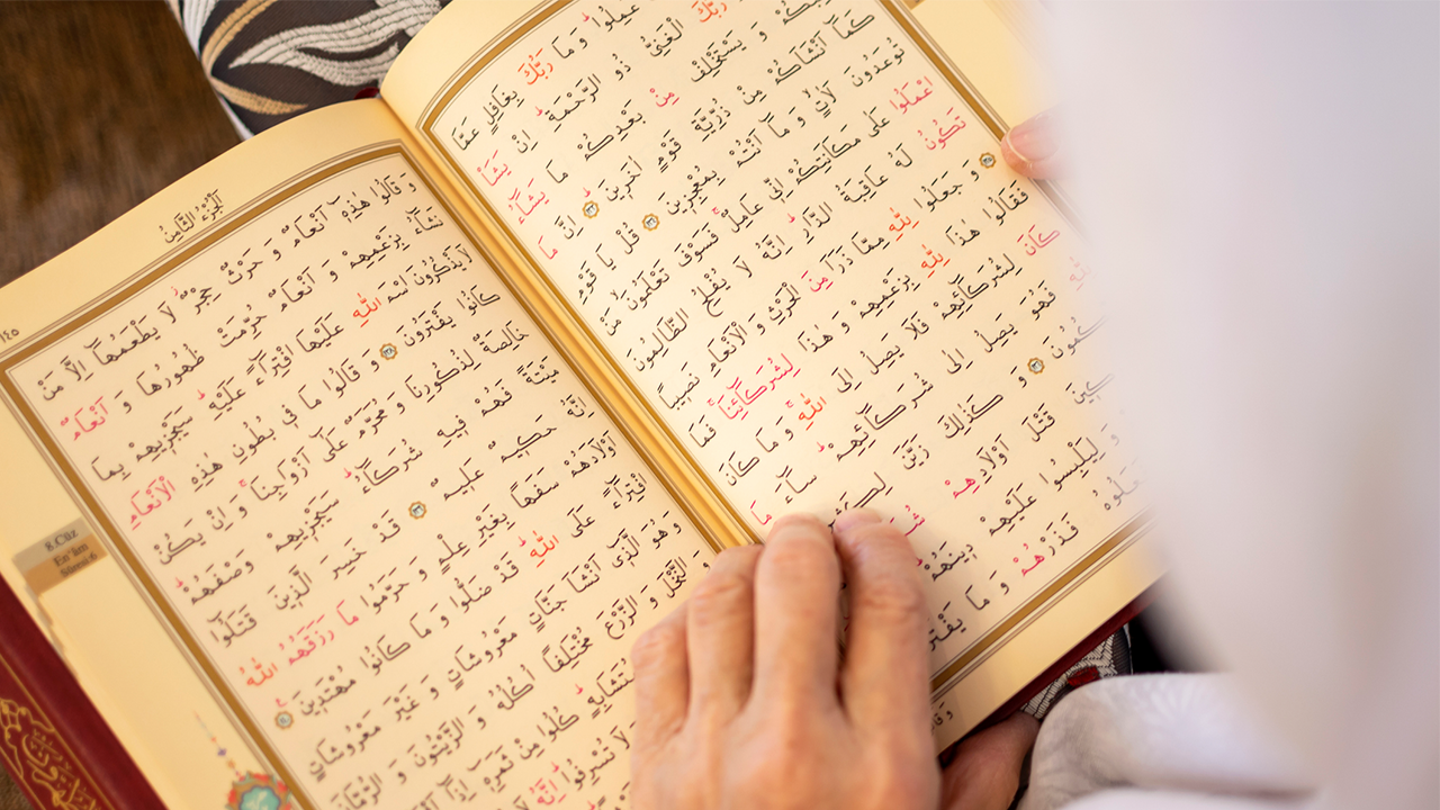 عَمِلُوا وَ مَا رَبُّكَ بِغَافِلٍ عَمَّا
رَبُّكَ الْغَنِيُّ ذُو الرَّحْمَةِ اِنْ يَشَأْ
وَ يَسْتَخْلِفْ مِنْ بَعْدِكُمْ مَا يَشَٓاءُ
كَمَٓا اَنْشَاَكُمْ مِنْ ذُرِّيَّةِ قَوْمٍ اٰخَرِينَ ﴿١٣٣﴾ اِنَّ مَا
تُوعَدُونَ لَاٰتٍ وَ مَٓا اَنْتُمْ بِمُعْجِزِينَ ﴿١٣٤﴾ قُلْ يَا قَوْمِ
اعْمَلُوا عَلٰى مَكَانَتِكُمْ اِنِّى عَامِلٌ فَسَوْفَ تَعْلَمُونَ مَنْ
تَكُونُ لَهُ عَاقِبَةُ الدَّارِ اِنَّهُ لَا يُفْلِحُ الظَّالِمُونَ
﴿١٣٥﴾ وَ جَعَلُوا لِلّٰهِ مِمَّا ذَرَاَ مِنَ الْحَرْثِ وَ الْاَنْعَامِ نَصِيبًا
فَقَالُوا هٰذَا لِلّٰهِ بِزَعْمِهِمْ وَ هٰذَا لِشُرَكَٓائِنَا فَمَا
كَانَ لِشُرَكَٓائِهِمْ فَلَا يَصِلُ اِلَى اللّٰهِ وَ مَا كَانَ
لِلّٰهِ فَهُوَ يَصِلُ اِلٰى شُرَكَٓائِهِمْ سَٓاءَ مَا
﴿١٣٦﴾ وَ كَذٰلِكَ زَيَّنَ
قَتْلَ اَوْلَادِهِمْ
وَ لِيَلْبِسُوا عَلَيْهِمْ دِينَهُمْ
فَذَرْهُمْ وَ مَا
اَلْجُزْءُ الثَّامِنُ
١٤٥
وَ قَالُوا هٰذِهِٓ اَنْعَامٌ وَ حَرْثٌ حِجْرٌ لَا يَطْعَمُهَٓا اِلَّا مَنْ
نَشَٓاءُ بِزَعْمِهِمْ وَ اَنْعَامٌ حُرِّمَتْ ظُهُورُهَا وَ اَنْعَامٌ
لَا يَذْكُرُونَ اسْمَ اللّٰهِ عَلَيْهَا افْتِرَٓاءً عَلَيْهِ سَيَجْزِيهِمْ بِمَا
كَانُوا يَفْتَرُونَ ﴿١٣٨﴾ وَ قَالُوا مَا فِى بُطُونِ هٰذِهِ الْاَنْعَامِ
خَالِصَةٌ لِذُكُورِنَا وَ مُحَرَّمٌ عَلٰٓى اَزْوَاجِنَا وَ اِنْ يَكُنْ
مَيْتَةً فَهُمْ فِيهِ شُرَكَٓاءُ سَيَجْزِيهِمْ وَصْفَهُمْ
اِنَّهُ حَكِيمٌ عَلِيمٌ ﴿١٣٩﴾ قَدْ خَسِرَ الَّذِينَ قَتَلُٓوا
اَوْلَادَهُمْ سَفَهًا بِغَيْرِ عِلْمٍ وَ حَرَّمُوا مَا رَزَقَهُمُ اللّٰهُ
افْتِرَٓاءً عَلَى اللّٰهِ قَدْ ضَلُّوا وَ مَا كَانُوا مُهْتَدِينَ ﴿١٤٠﴾
وَ هُوَ الَّذِٓى اَنْشَاَ جَنَّاتٍ مَعْرُوشَاتٍ وَ غَيْرَ مَعْرُوشَاتٍ
وَ النَّخْلَ وَ الزَّرْعَ مُخْتَلِفًا اُكُلُهُ وَ الزَّيْتُونَ وَ الرُّمَّانَ
مُتَشَابِهٍ كُلُوا مِنْ ثَمَرِهِٓ اِذَٓا
لَا تُسْرِفُوا اِنَّهُ
8.Cüz
En'âm
Sûresi 6